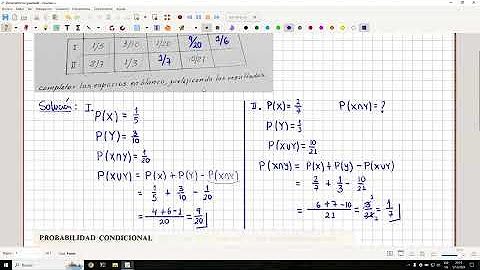 I 1/5 3/10 1/20 9/20 1/6
II 2/7 1/3 1/7 10/21
completar los espacios en blanco, justificando los resultados.
Solución: I. P(X) = 1/5
P(Y) = 3/10
P(X∩Y) = 1/20
P(X∪Y) = P(X) + P(Y) - P(X∩Y)
= 1/5 + 3/10 - 1/20
= 4+6-1/20 = 9/20
II. P(X) = 2/7 P(X∩Y) = ?
P(Y) = 1/3
P(X∪Y) = 10/21
P(X∩Y) = P(X) + P(Y) - P(X∪Y)
= 2/7 + 1/3 - 10/21
= 6+7-10/21 = 3/21 = 1/7
PROBABILIDAD CONDICIONAL